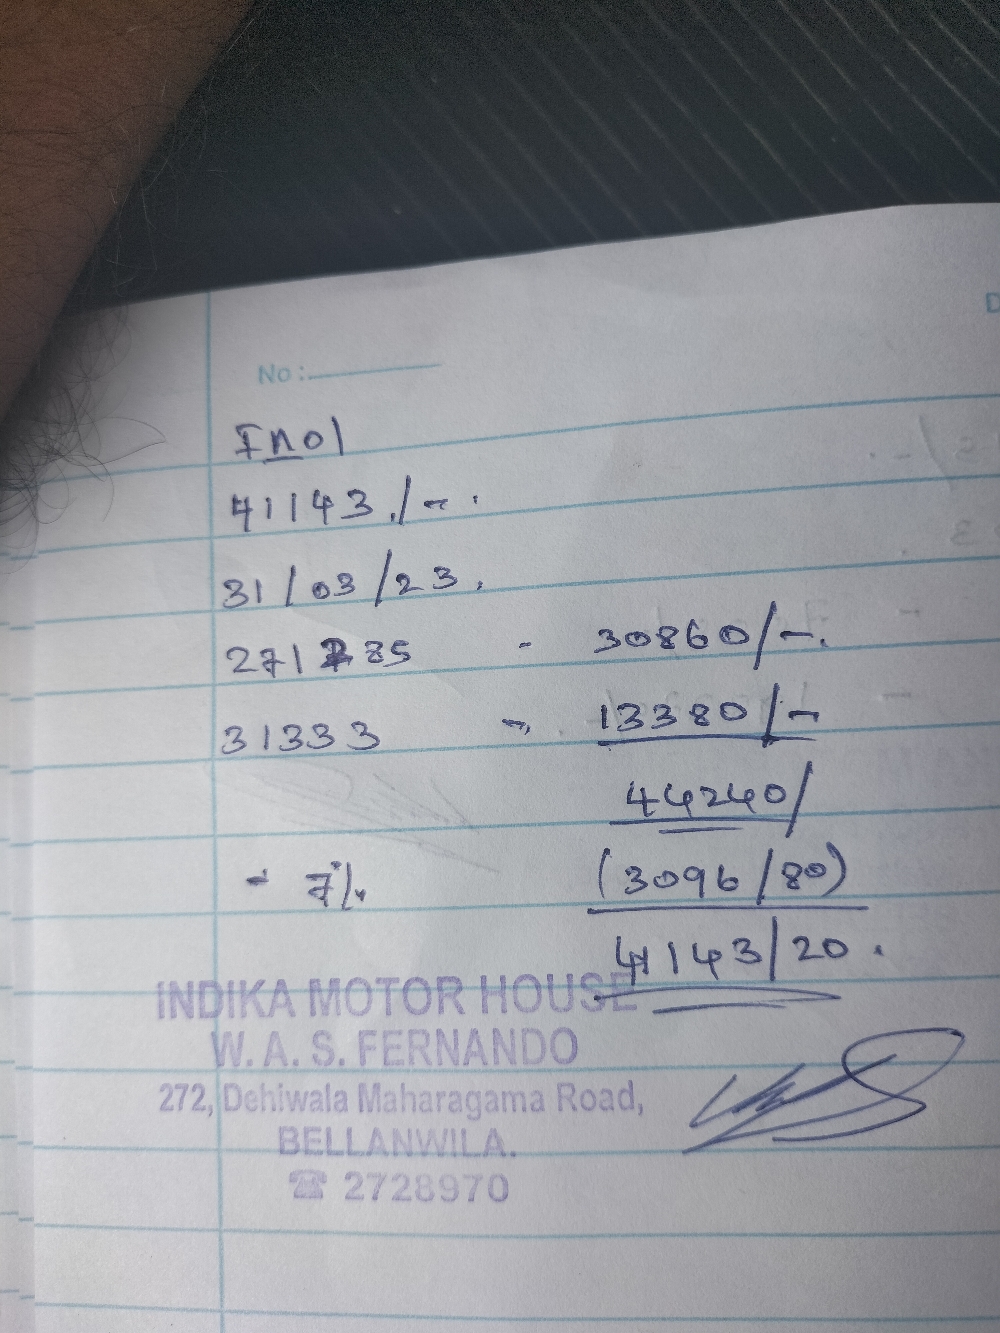 No:
Inol
41143./-.
31/03/23.
271285 - 30860/-.
31333 - 13380/-
44240/
- 7% (3096/80)
41143/20.
INDIKA MOTOR HOUSE
W. A. S. FERNANDO
272, Dehiwala Maharagama Road,
BELLANWILA.
☎ 2728970